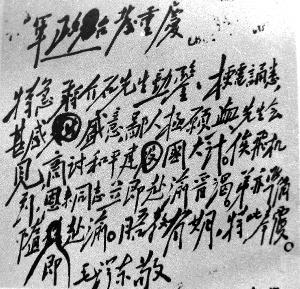 重慶。
特急 蔣介石先生勛鑒、梗電誦悉,
甚感盛意鄙人極願與先生会
見,商讨和平建国大計。俟飛机
到,恩来同志立即赴渝晋謁。弟亦準備
隨即赴渝。晤教有期,特此奉覆。
毛澤東敬